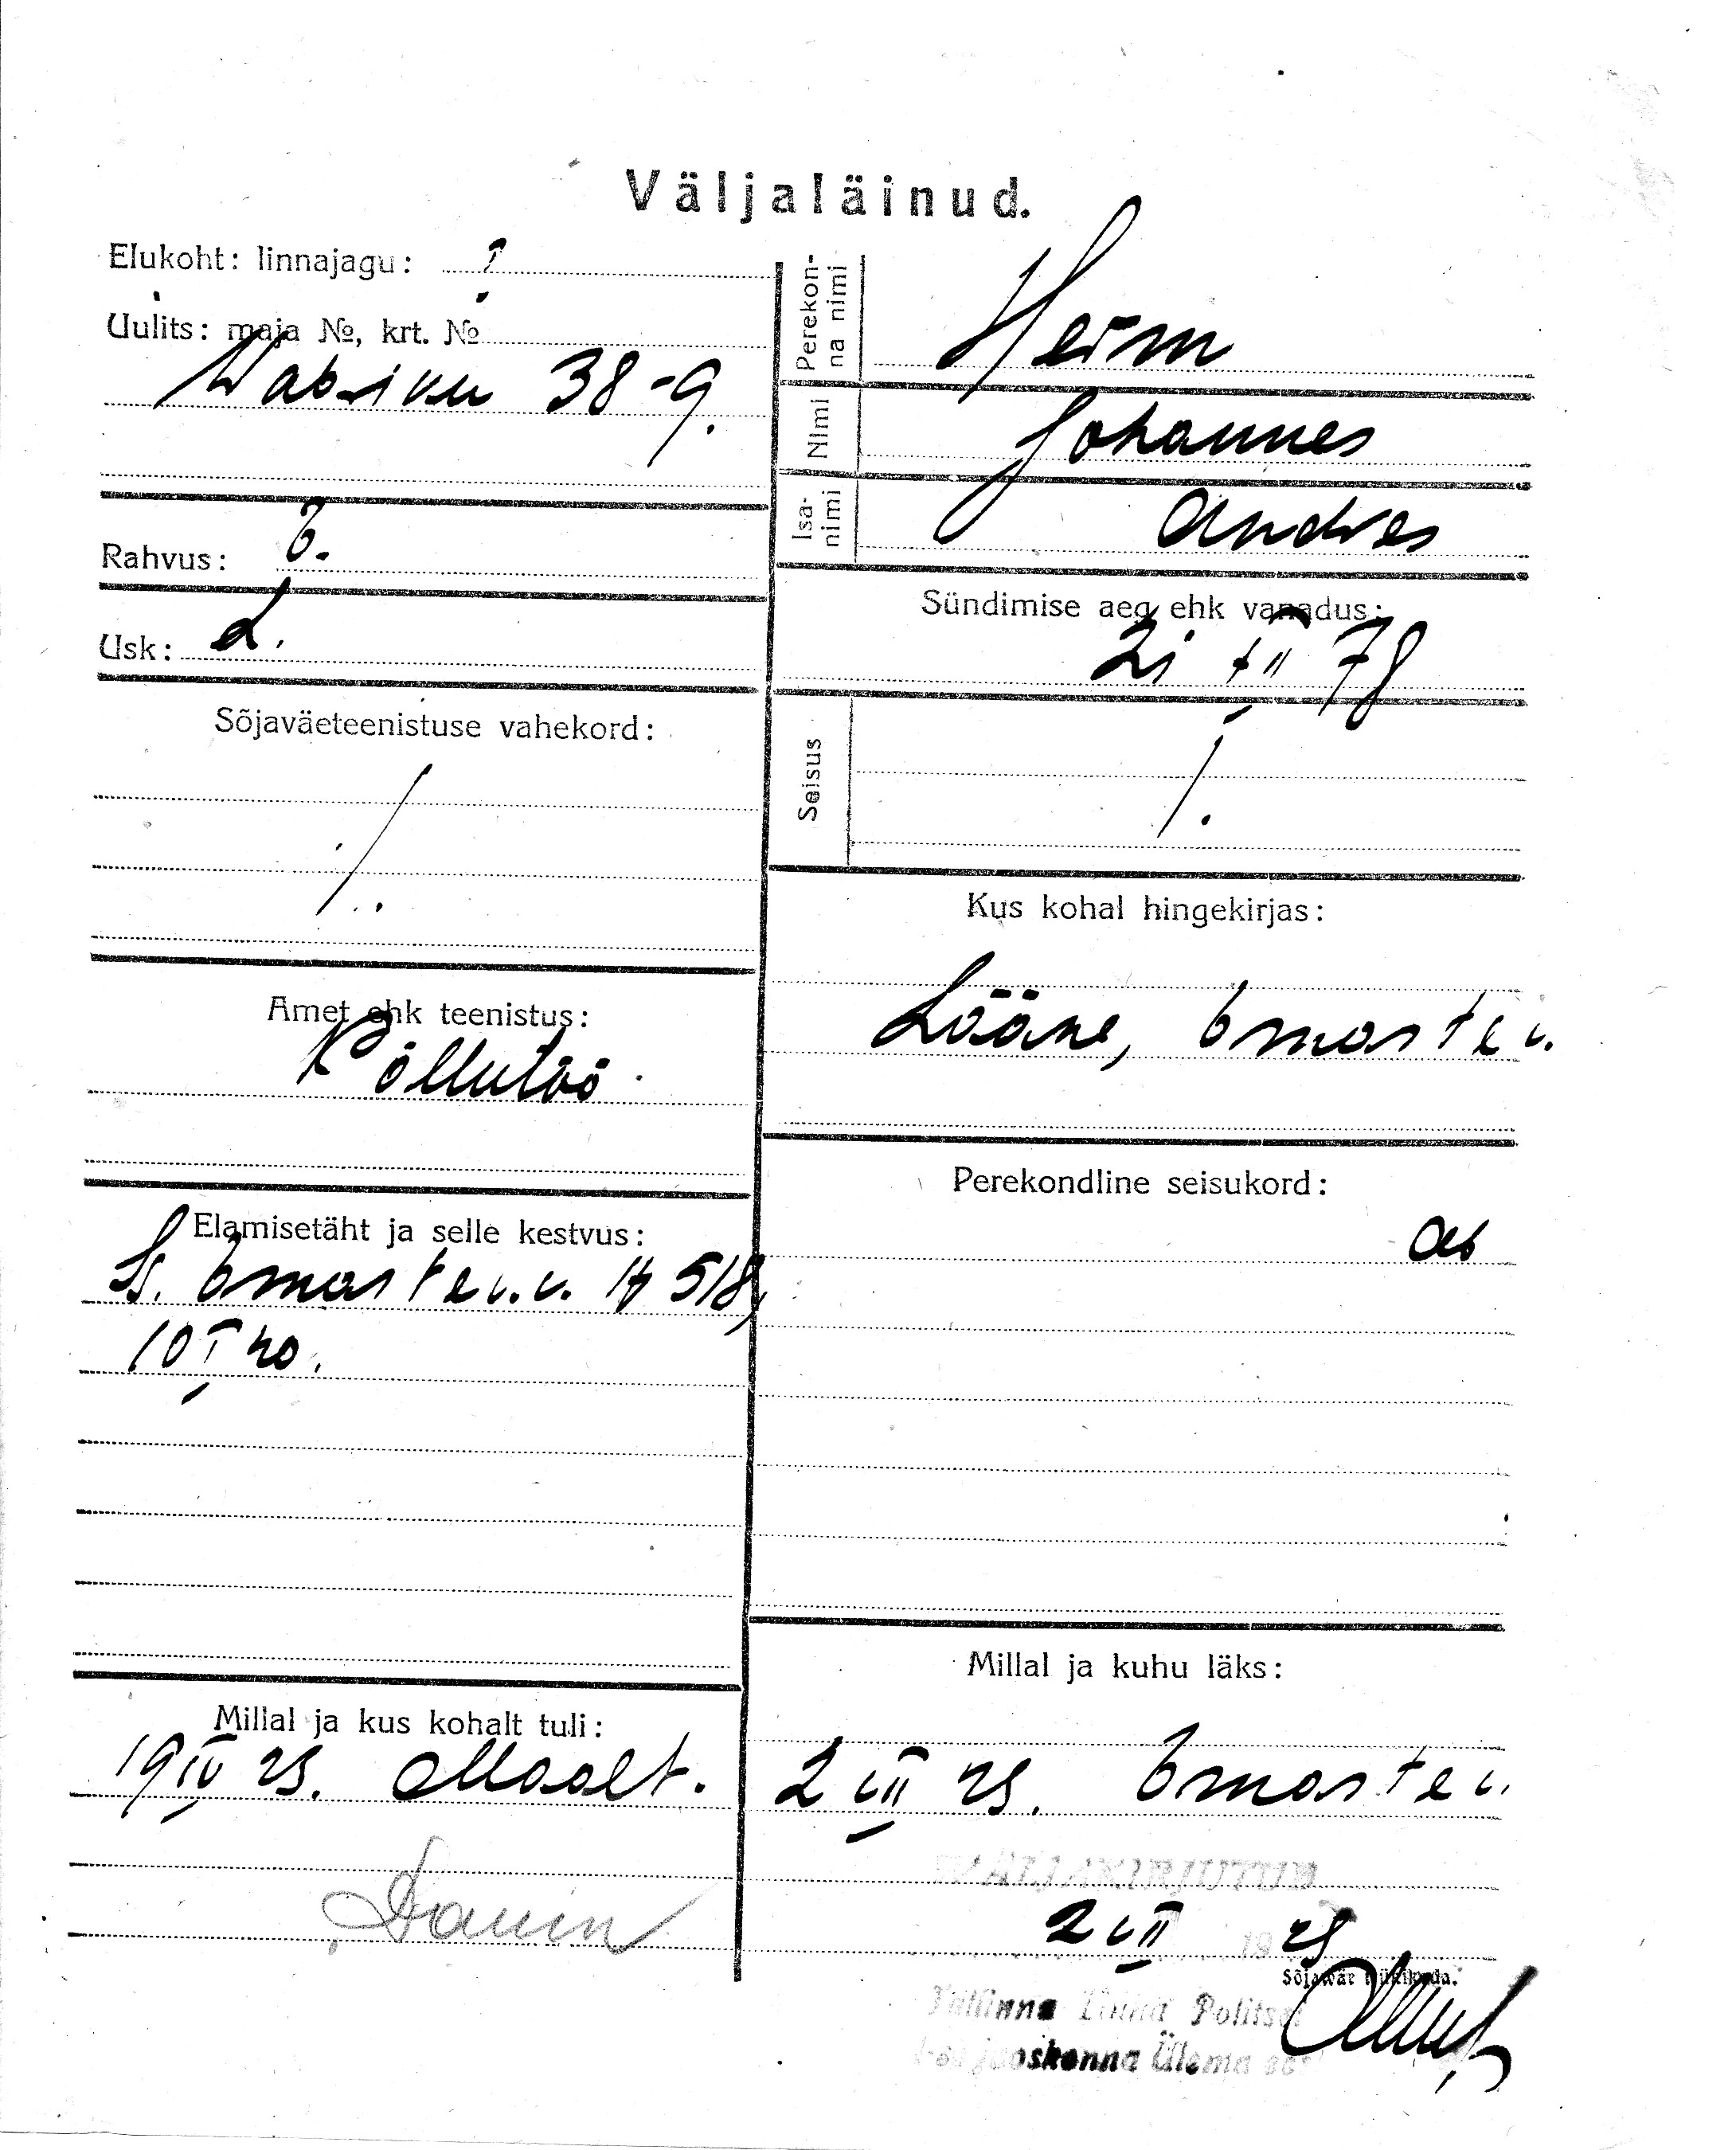 Väljaläinud.
Elukoht: linnajagu: ?
Uulits: maja №, krt. №
Wabriku 38-9.
Rahvus: E.
Usk: L.
Sõjaväeteenistuse vahekord:
/.
Amet ehk teenistus:
Põllutöö
Elamisetäht ja selle kestvus:
Ls. Emaste v.v. № 518,
10 I 20.
Millal ja kus kohalt tuli:
19 IV 23. Maalt.
Perekonna nimi
Heim
Nimi
Johannes
Isanimi
Andres
Sündimise aeg ehk vanadus:
21 XII 78
Seisus
/.
Kus kohal hingekirjas:
Lääne, Emaste v.
Perekondline seisukord:
ab
Millal ja kuhu läks:
2 VII 23. Emaste v.
VÄLJAKIRJUTUD
2 VII 1923
Sõjawäe trükikoda.
Tallinna Linna Politsei
jaoskonna Ülema